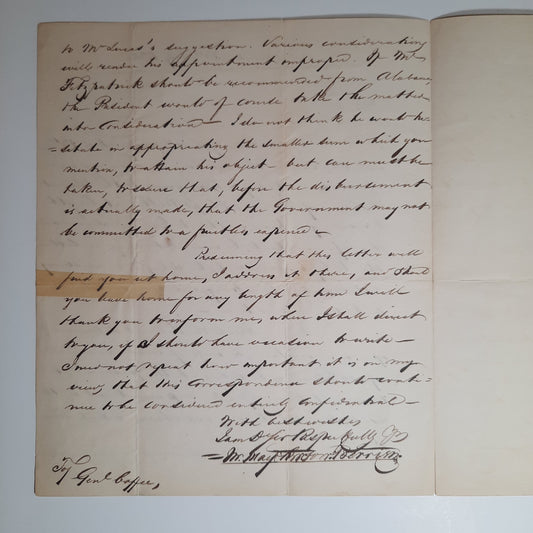 to Mr Lucas's suggestion. Various considerations
will render his appointment improper. If Mr
Fitzpatrick should be recommended from Alabama
the President would of course take the matter
into consideration — I do not think he would he-
=sitate in appropriating the smaller sum which you
mention, to attain his object — but care must be
taken, to secure that, before the disbursement
is actually made, that the Government may not
be committed to a fruitless expense —
Presuming that this letter will
find you at home, I address it there, and shd
you leave home for any length of time I will
thank you to inform me, where I shall direct
to you, if I should have occasion to write —
I need not repeat how important it is in my
view, that this Correspondence should conti-
nue to be considered entirely confidential —
With best wishes
I am D Sir Respectfully Yr
To Genl Coffee,